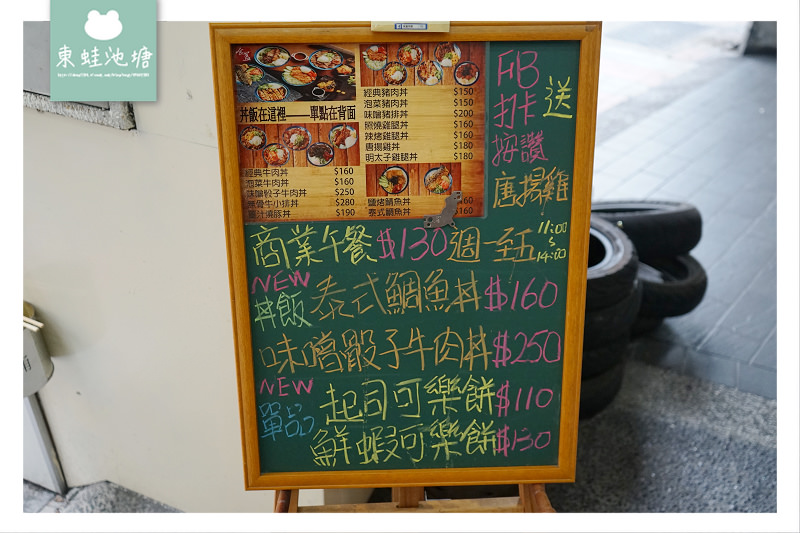 東蛙池塘
丼飯在這裡——單點在背面
經典牛肉丼 $160
泡菜牛肉丼 $160
味噌骰子牛肉丼 $250
無骨牛小排丼 $280
薑汁燒豚丼 $190
經典豬肉丼 $150
泡菜豬肉丼 $150
味噌豬排丼 $200
照燒雞腿丼 $160
辣烤雞腿丼 $160
唐揚雞丼 $180
明太子雞腿丼 $180
鹽烤鯛魚丼 $160
泰式鯛魚丼 $160
FB
打卡
按讚
送
唐揚雞
商業午餐$130週一至五 11:00
~
14:00
NEW
丼飯 泰式鯛魚丼$160
味噌骰子牛肉丼$250
NEW
單品 起司可樂餅$110
鮮蝦可樂餅$130